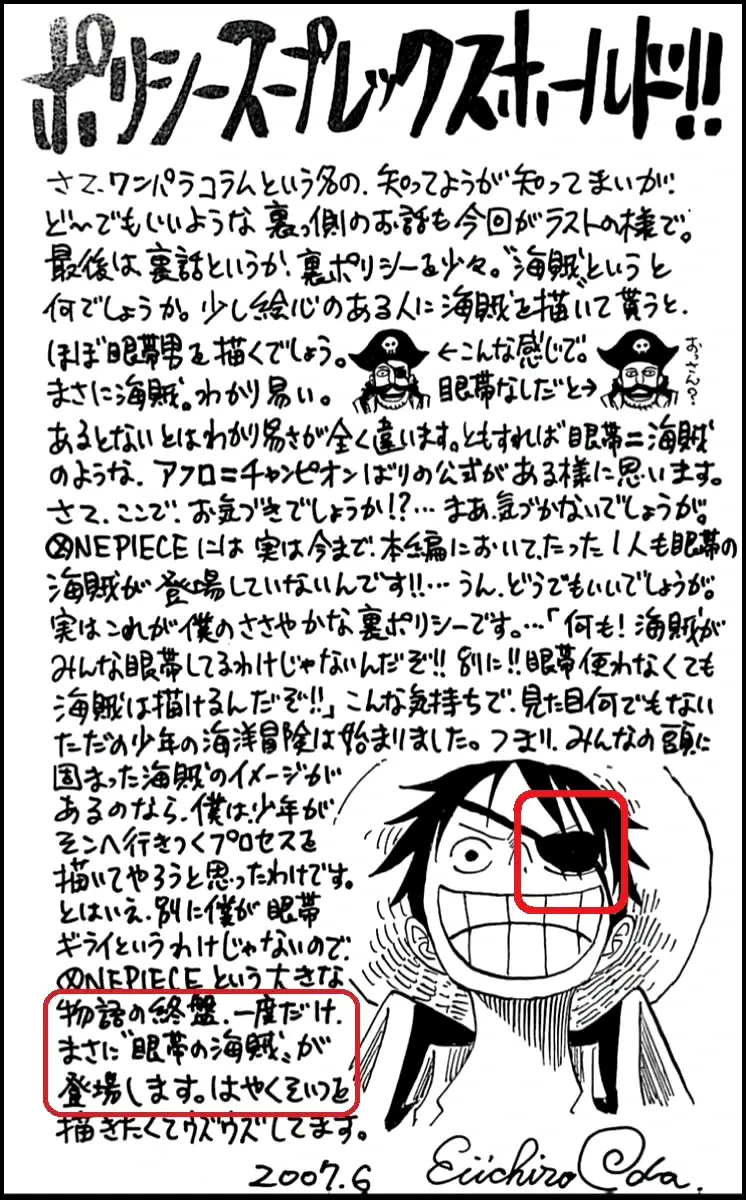 ポリシースープレックスホールド!!
さて、ワンパラコラムという名の、知ってようが知ってまいが、
ど〜でもいいような裏っ側のお話も今回がラストの様で。
最後は裏話というか、裏ポリシーを少々。"海賊"というと
何でしょうか。少し絵心のある人に海賊を描いて貰うと、
ほぼ眼帯男を描くでしょう。 ←こんな感じで。 おっさん?
まさに海賊。わかり易い。 眼帯なしだと→
あるとないとはわかり易さが全く違います。ともすれば眼帯=海賊
のような、アフロ=チャンピオンばりの公式がある様に思います。
さて、ここで、お気づきでしょうか!?…まあ、気づかないでしょうが。
ONEPIECEには実は今まで、本編において、たった1人も眼帯の
海賊が登場していないんです!!…うん、どうでもいいでしょうが。
実はこれが僕のささやかな裏ポリシーです。…「何も!海賊が
みんな眼帯してるわけじゃないんだぞ!!別に!!眼帯使わなくても
海賊は描けるんだぞ!!」こんな気持ちで、見た目何でもない
ただの少年の海洋冒険は始まりました。つまり、みんなの頭に
固まった海賊のイメージが
あるのなら、僕は、少年が
そこへ行きつくプロセスを
描いてやろうと思ったわけです。
とはいえ、別に僕が眼帯
ギライというわけじゃないので、
ONEPIECEという大きな
物語の終盤、一度だけ、
まさに"眼帯の海賊"が
登場します。はやくそいつを
描きたくてウズウズしてます。
2007.6 Eiichiro Oda.